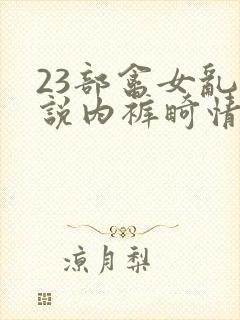 23部畜女乱
說内裤畸情
凉月梨